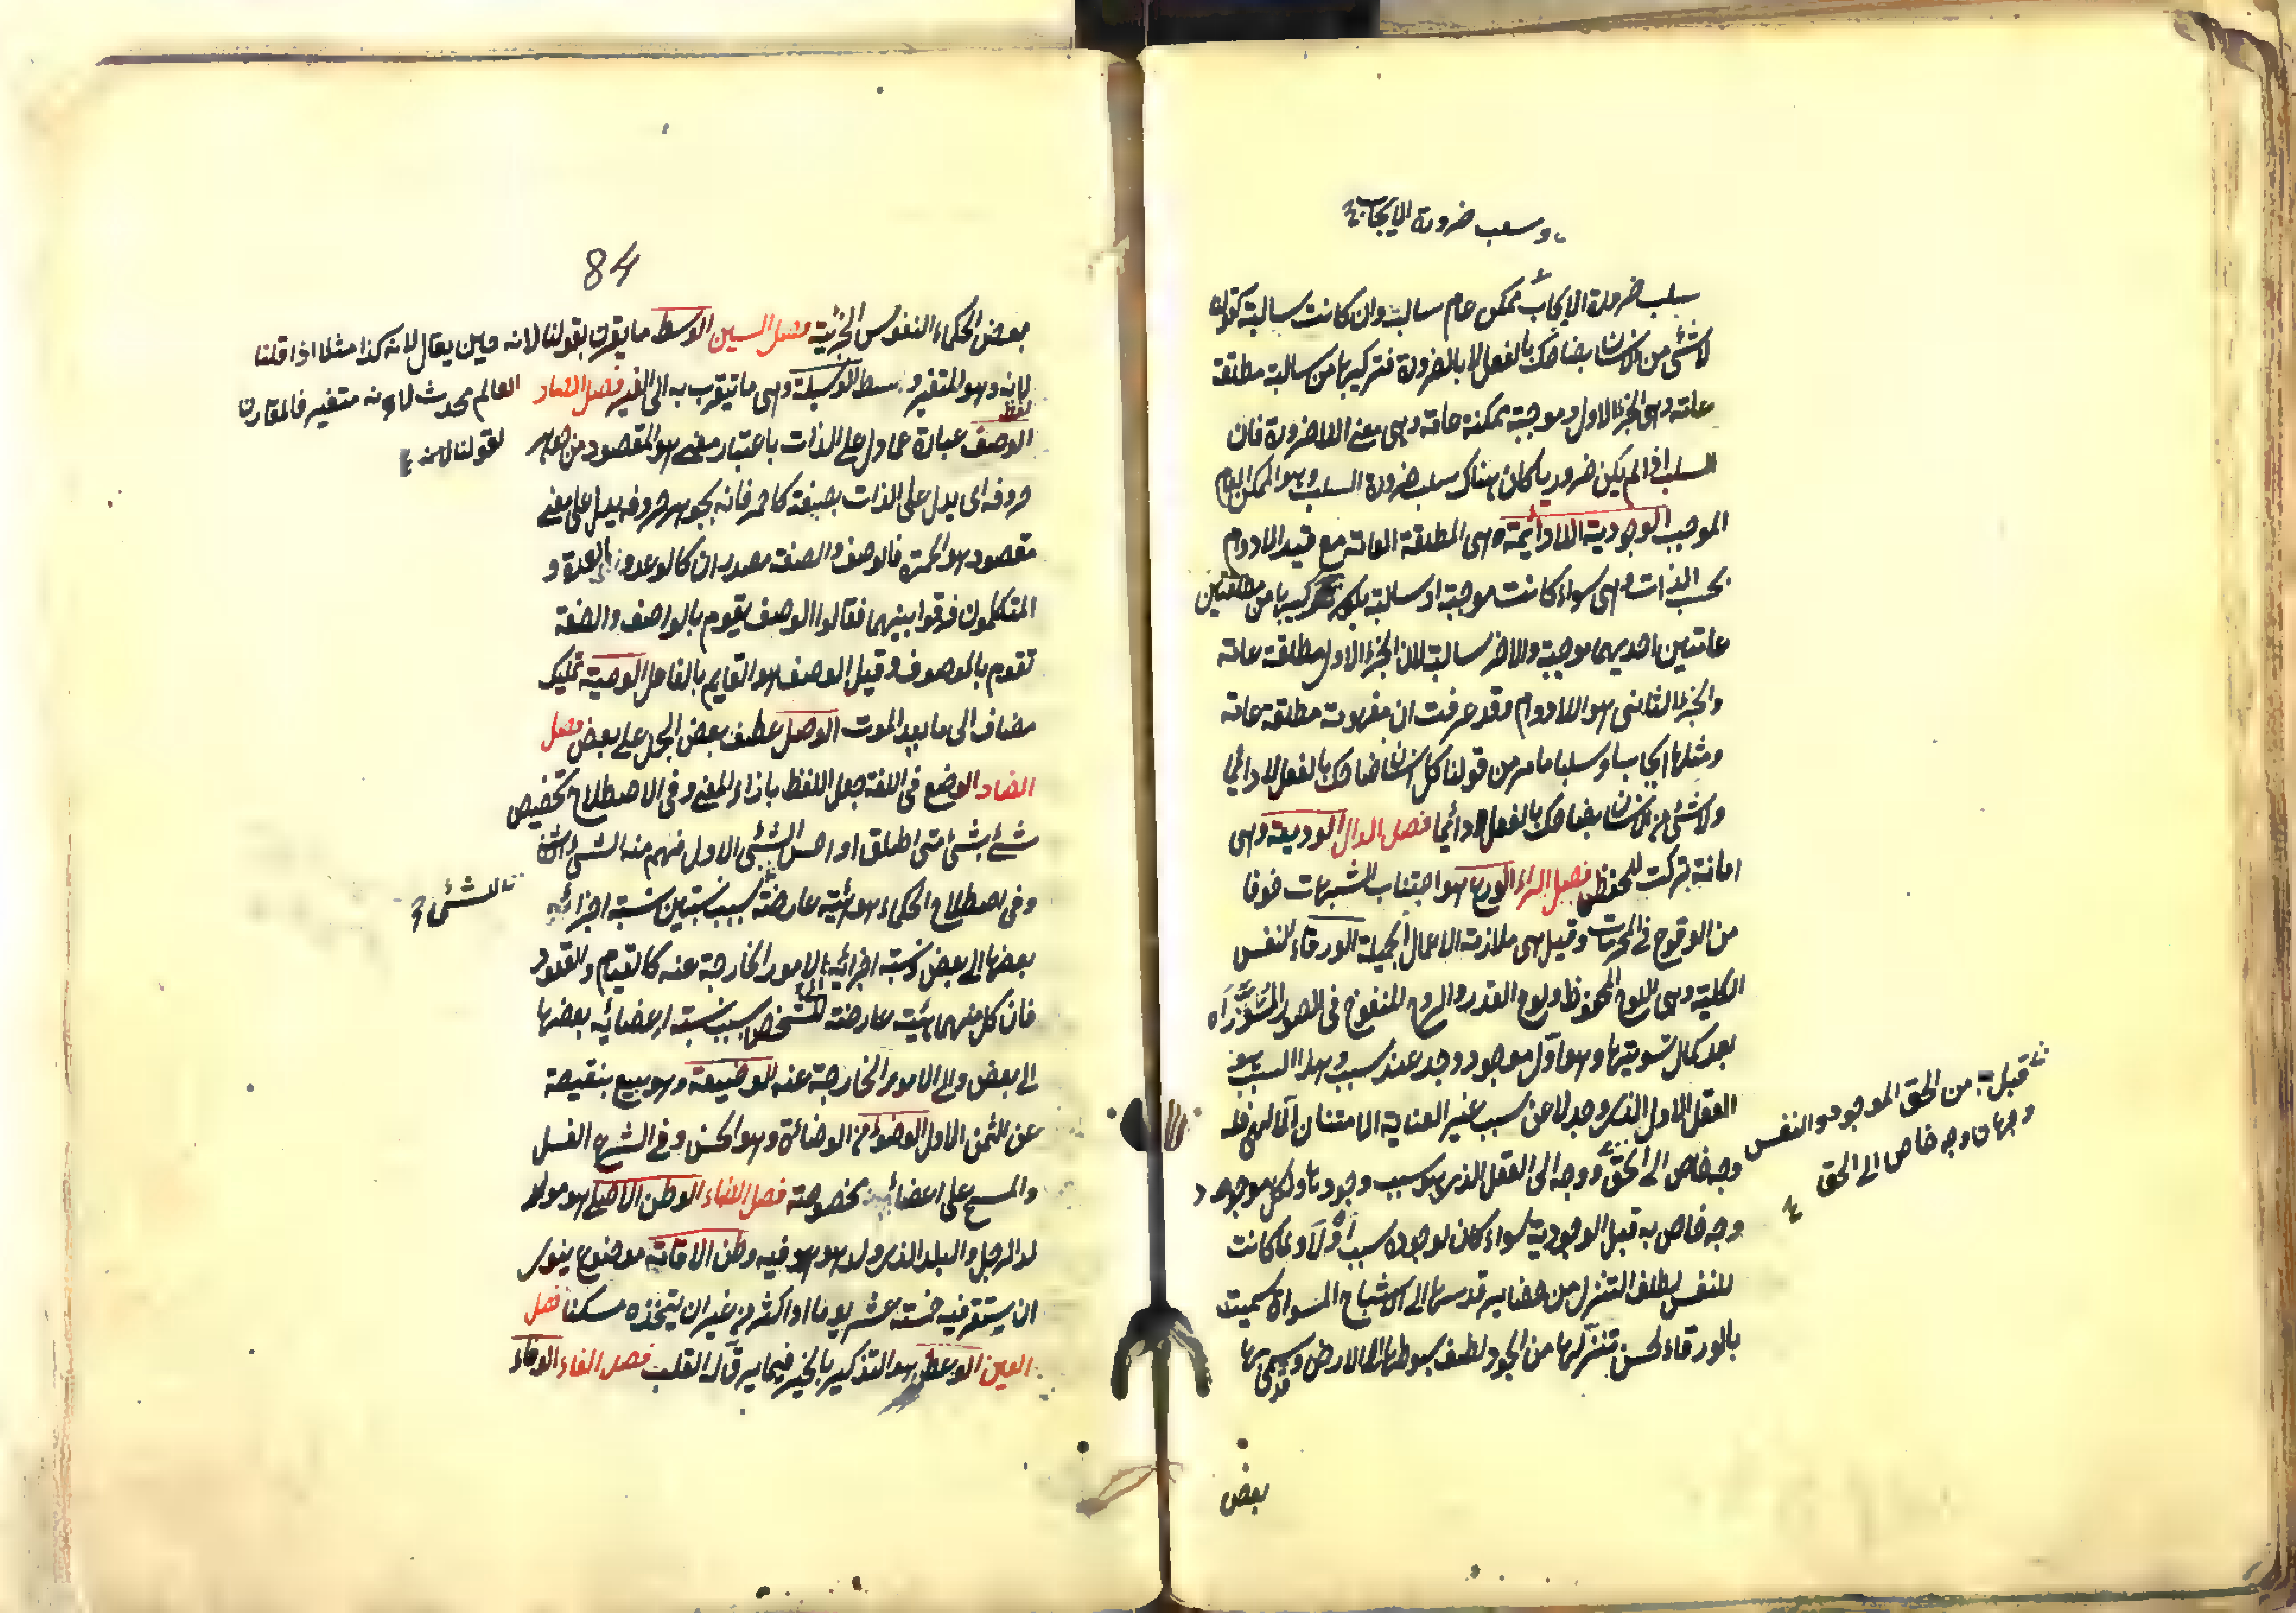 وسلب ضرورة الايجاب
سلب ضرورة الايجاب ممكن عام سالب وان كانت سالبة كقولنا
لا شئ من الانسان بضاحك بالفعل لا بالضرورة فتركيبها من سالبة مطلقة
عامة وهى الجزء الاول وموجبة ممكنة عامة وهى معنى اللاضرورة فان
السلب اذا لم يكن ضروريا كان هناك سلب ضرورة السلب وهو الممكن العام
الموجب الوجودية اللادائمة وهى المطلقة العامة مع قيد اللادوام
بحسب الذات وهى سواء كانت موجبة او سالبة يكون تركيبها من مطلقتين
عامتين احديهما موجبة والاخر سالبة لان الجزء الاول مطلقة عامة
والجزء الثانى هو اللادوام وقد عرفت ان مفهومه مطلقة عامة
ومثلها ايجابا وسلبا ما مر من قولنا كل انسان ضاحك بالفعل لا دائما
ولا شئ من الانسان بضاحك بالفعل لا دائما فصل الدال الوديعة وهى
امانة تركت للحفظ فصل الراء الورع هو اجتناب الشبهات خوفا
من الوقوع فى المحرمات وقيل هى ملازمة الاعمال الجميلة الورقاء النفس
الكلية وهى اللوح المحفوظ ولوح القدر والروح المنفوخ فى الصور المسواة
بعد كمال تسويتها وهو اول موجود وجد عند سبب وهذا السبب هو
العقل الاول الذى وجد لا عن سبب غير العناية الامتنان الالهى فله
وجه خاص الى الحق ووجه الى العقل الذى هو سبب وجودها ولكل موجود
وجه خاص به قبل الوجودية سواء كان لوجوده سبب اولا ولما كانت
للنفس لطف التنزل من حضاير قدسها الى الاشباح المسواة سميت
بالورقاء لحسن تنزلها من الجود لطف بسوطها الى الارض وسمى بها
قبل من الحق الموجود والنفس
وجهان وجه خاص الى الحق
بعض
84
بعض الحكماء النفوس الجزئية فصل السين الوسط ما يقرن بقولنا لانه حين يقال لانه كذا مثلا اذا قلنا
لانه وهو المتغير وسط الوسيلة وهى ما يتقرب به الى الغير فصل الصاد
العالم محدث لانه متغير فالمقارن
لقولنا لانه
لفظ
الوصف عبارة عما دل على الذات باعتبار معنى هو المقصود من جوهر
حروفه اى يدل على الذات بصيغته كاحمر فانه بجوهر حروفه يدل على معنى
مقصود هو الحمرة فالوصف والصفة مصدران كالوعد والعدة و
المتكلمون فرقوا بينهما فقالوا الوصف يقوم بالواصف والصفة
تقوم بالموصوف وقيل الوصف هو القايم بالفاعل الوصية تمليك
مضاف الى ما بعد الموت الوصل عطف بعض الجمل على بعض فصل
الضاد الوضع فى اللغة جعل اللفظ بازاء المعنى وفى الاصطلاح تخصيص
شئ بشئ متى اطلق او احس الشئ الاول فهم منه الشئ الثانى
وفى اصطلاح الحكماء هو هيئة عارضة بسبب نسبتين نسبة اجزائه
للشئ
بعضها الى بعض ونسبة اجزائه الى الامور الخارجة عنه كالقيام والقعود
فان كلا منهما هيئة عارضة للشخص بسبب نسبة اعضائه بعضها
الى بعض والى الامور الخارجة عنه الوضيعة وهو بيع بنقيصة
عن الثمن الاول الوضوء من الوضائة وهو الحسن وفى الشرع الغسل
والمسح على اعضاء مخصوصة فصل الطاء الوطن الاصلى هو مولد
الرجل والبلد الذى ولد هو فيه وطن الاقامة موضوع ينوى
ان يستقر فيه خمسة عشر يوما او اكثر من غير ان يتخذه مسكنا فصل
العين الوعظ هو التذكير بالخير فيما يرق له القلب فصل الفاء الوفاء